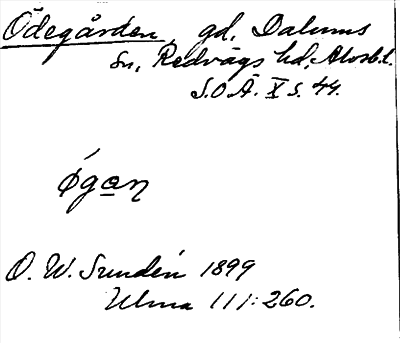 Ödegården, gd, Dalums
sn, Redvägs hd, Älvsb.l.
S.O.Ä. X s. 44.
ǿgan̥
O. W. Sundén 1899
Ulma 111:260.